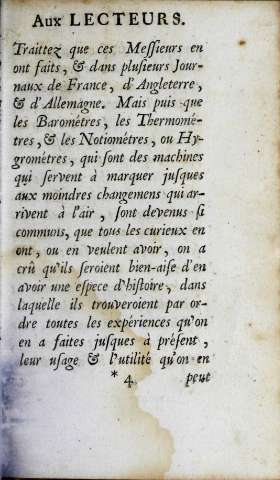 Aux LECTEURS.
Traittez que ces Meſſieurs en
ont faits, & dans pluſieurs Jour-
naux de France, d'Angleterre,
& d'Allemagne. Mais puis que
les Barométres, les Thermomé-
tres, & les Notiométres, ou Hy-
grométres, qui ſont des machines
qui ſervent à marquer juſques
aux moindres changemens qui ar-
rivent à l'air, ſont devenus ſi
communs, que tous les curieux en
ont, ou en veulent avoir, on a
crû qu'ils ſeroient bien-aiſe d'en
avoir une eſpece d'hiſtoire, dans
laquelle ils trouveroient par or-
dre toutes les expériences qu'on
en a faites juſques à préſent,
leur uſage & l'utilité qu'on en
* 4 peut